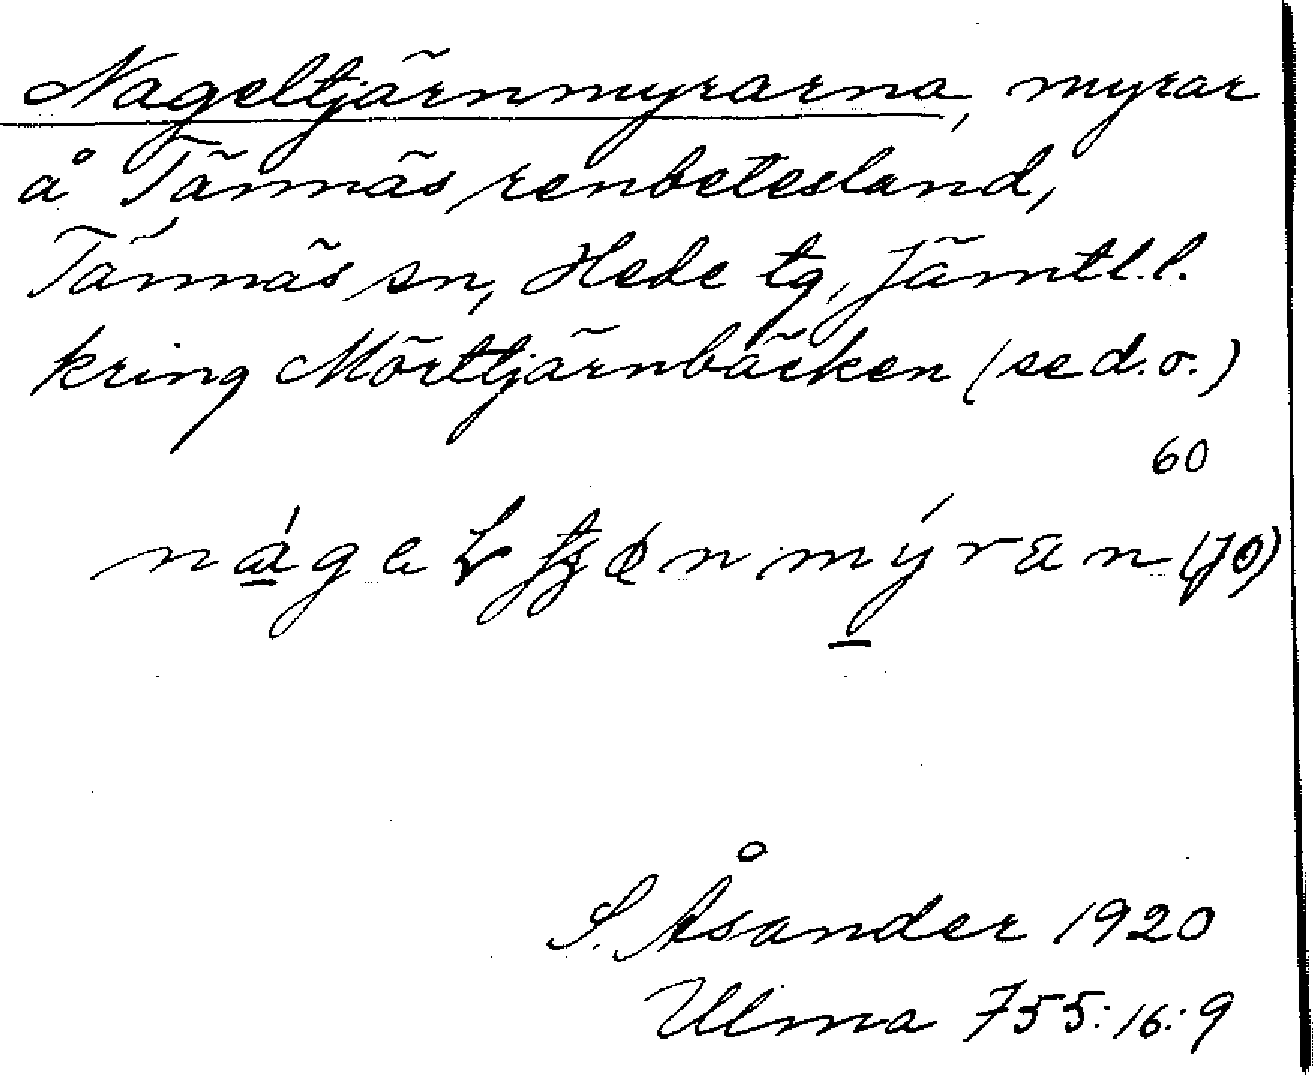 Nageltjärnmyrarna, myrar
å Tännäs renbetesland,
Tännäs sn, Hede tg, Jämtl.l.
kring Mörttjärnbäcken (se d.o.)
60
S. Åsander 1920
Ulma 755:16:9